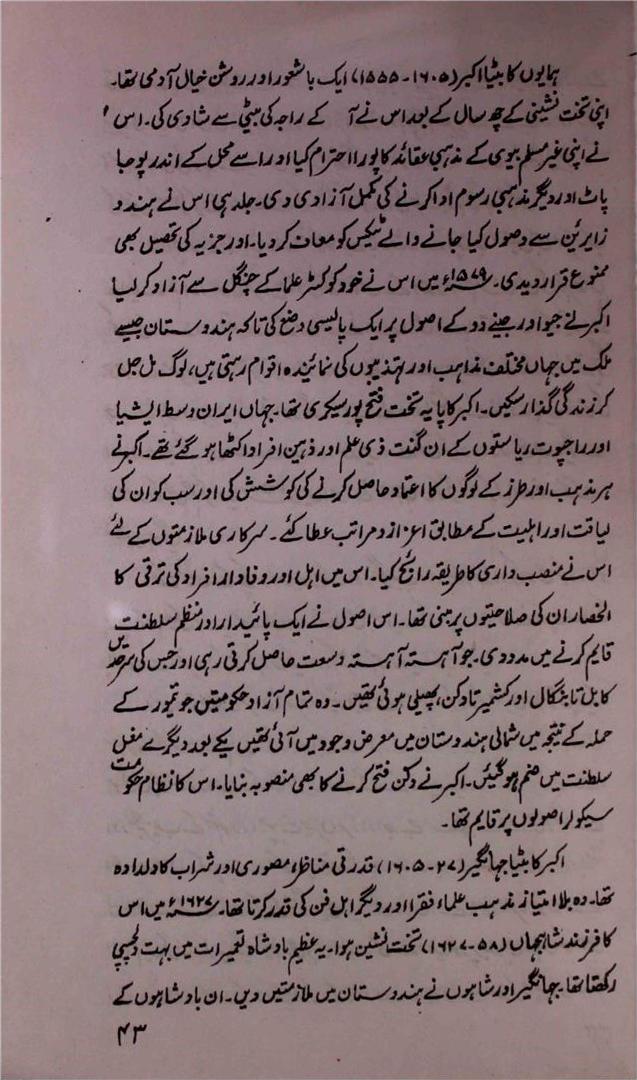 ہمایوں کا بیٹا اکبر (۱۶۰۵-۱۵۵۵) ایک باشعور اور روشن خیال آدمی تھا۔
اپنی تخت نشینی کے چھ سال کے بعد اس نے آ کے راجہ کی بیٹی سے شادی کی۔ اس
نے اپنی غیر مسلم بیوی کے مذہبی عقائد کا پورا احترام کیا اور اسے محل کے اندر پوجا
پاٹ اور دیگر مذہبی رسوم ادا کرنے کی مکمل آزادی دی۔ جلد ہی اس نے ہندو
زایرین سے وصول کیا جانے والے ٹیکس کو معاف کر دیا۔ اور جزیہ کی تحصیل بھی
ممنوع قرار دیدی۔ ۱۵۷۹ء میں اس نے خود کو کٹر علما کے چنگل سے آزاد کر لیا
اکبر نے جیو اور جینے دو کے اصول پر ایک پالیسی وضع کی تاکہ ہندوستان جیسے
ملک میں جہاں مختلف مذاہب اور تہذیبوں کی نمائیندہ اقوام رہتی ہیں، لوگ مل جل
کر زندگی گذار سکیں۔ اکبر کا پایہ تخت فتح پور سیکری تھا۔ جہاں ایران وسط ایشیا
اور راجپوت ریاستوں کے ان گنت ذی علم اور ذہین افراد اکٹھا ہو گئے تھے۔ اکبر نے
ہر مذہب اور طرز کے لوگوں کا اعتماد حاصل کرنے کی کوشش کی اور سب کو ان کی
لیاقت اور اہلیت کے مطابق اعزاز و مراتب عطا کئے۔ سرکاری ملازمتوں کے لئے
اس نے منصب داری کا طریقہ رائج کیا۔ اس میں اہل اور وفادار افراد کی ترقی کا
انحصار ان کی صلاحیتوں پر مبنی تھا۔ اس اصول نے ایک پائیدار اور منظم سلطنت
قایم کرنے میں مدد دی۔ جو آہستہ آہستہ وسعت حاصل کرتی رہی اور جس کی سرحدیں
کابل تا بنگال اور کشمیر تا دکن، پھیلی ہوئی تھیں۔ وہ تمام آزاد حکومتیں جو تیمور کے
حملہ کے نتیجہ میں شمالی ہندوستان میں معرض وجود میں آئی تھیں یکے بعد دیگرے مغل
سلطنت میں ضم ہو گئیں۔ اکبر نے دکن فتح کرنے کا بھی منصوبہ بنایا۔ اس کا نظام حکومت
سیکولر اصولوں پر قایم تھا۔
اکبر کا بیٹا جہانگیر (۲۷-۱۶۰۵) قدرتی مناظر، مصوری اور شراب کا دلدادہ
تھا۔ وہ بلا امتیاز مذہب علماء فقرا اور دیگر اہل فن کی قدر کرتا تھا۔ ۱۶۲۷ء میں اس
کا فرزند شاہجہاں (۵۸-۱۶۲۷) تخت نشین ہوا۔ یہ عظیم بادشاہ تعمیرات میں بہت دلچسپی
رکھتا تھا۔ جہانگیر اور شاہوں نے ہندوستان میں ملازمتیں دیں۔ ان بادشاہوں کے
۴۳